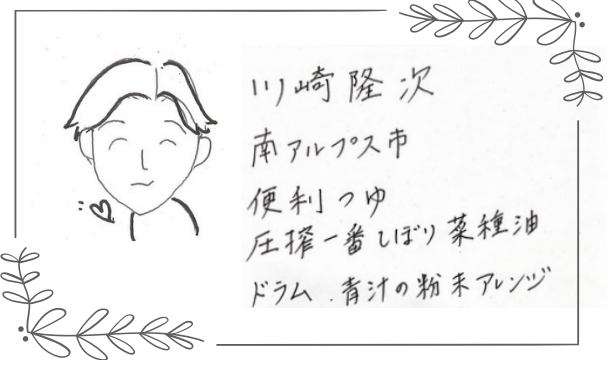 川崎隆次
南アルプス市
便利つゆ
圧搾一番しぼり菜種油
ドラム.青汁の粉末アレンジ